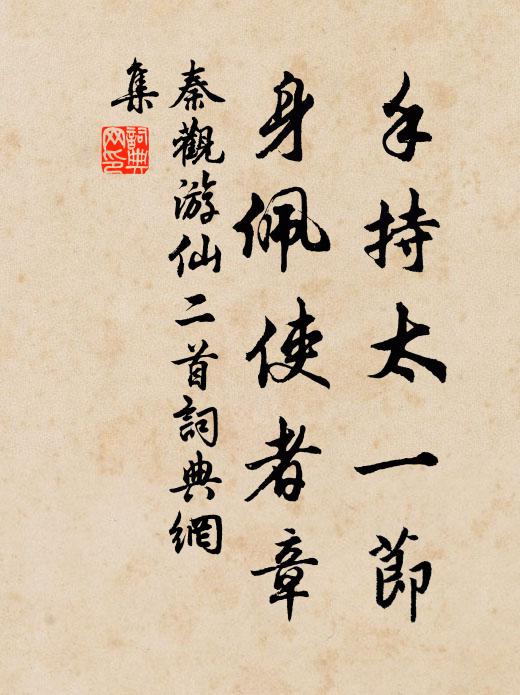 手持太一節
身佩使者章
秦觀游仙二首詞典網
集
詞典
网印